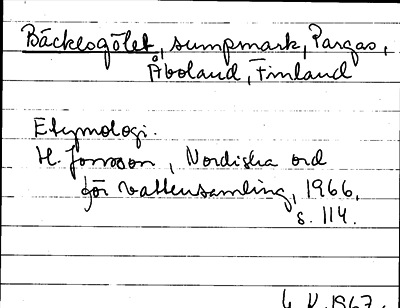 Bäcklosgölet, sumpmark, Pargas,
Åboland, Finland
Etymologi.
H. Jonsson, Nordiska ord
för vattensamling, 1966,
s. 114.
1967.